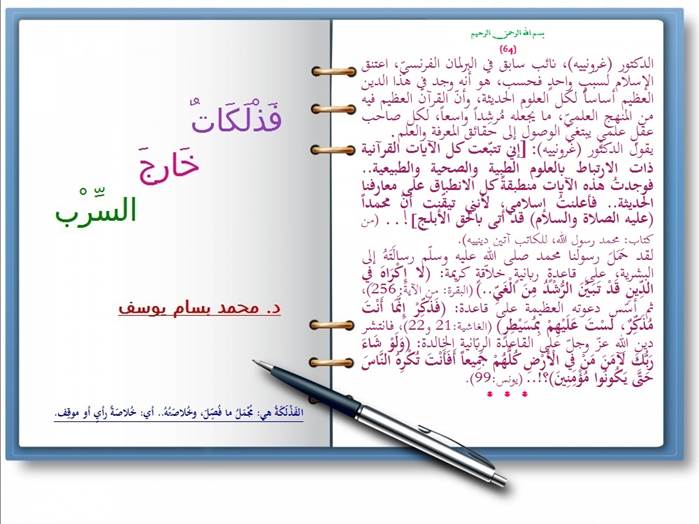 بسم الله الرحمن الرحيم
(64)
الدكتور (غرونييه)، نائب سابق في البرلمان الفرنسيّ، اعتنق
الإسلام لسببٍ واحدٍ فحسب، هو أنه وجد في هذا الدين
العظيم أساساً لكل العلوم الحديثة، وأنّ القرآن العظيم فيه
من المنهج العلميّ، ما يجعله مُرشِداً واسعاً، لكل صاحب
عقلٍ علميٍ يبتغي الوصول إلى حقائق المعرفة والعلم.
يقول الدكتور (غرونييه): [إني تتبّعت كل الآيات القرآنية
ذات الارتباط بالعلوم الطبية والصحية والطبيعية..
فوجدتُ هذه الآيات منطبقةً كل الانطباق على معارفنا
الحديثة.. فأعلنتُ إسلامي، لأنني تيقّنتِ أنّ محمداً
(عليه الصلاة والسلام) قد أتى بالحق الأبلج]!.. (من
كتاب: محمد رسول الله، للكاتب آتين دينييه).
لقد حَمَلَ رسولنا محمد صلى الله عليه وسلّم رسالَتَهُ إلى
البشرية، على قاعدةٍ ربانيةٍ خلاّقةٍ كريمة: (لا إِكْرَاهَ فِي
الدِّينِ قَد تَبَيَّنَ الرُّشْدُ مِنَ الْغَيِّ..) (البقرة: من الآية256)،
ثم أسّس دعوته العظيمة على قاعدة: (فَذَكِّرْ إِنَّمَا أَنْتَ
مُذَكِّرٌ، لَسْتَ عَلَيْهِمْ بِمُسَيْطِرٍ) (الغاشية:21 و22)، فانتشر
دين الله عزّ وجلّ على القاعدة الربّانية الخالدة: (وَلَوْ شَاءَ
رَبُّكَ لَآمَنَ مَنْ فِي الْأَرْضِ كُلُّهُمْ جَمِيعاً أَفَأَنْتَ تُكْرِهُ النَّاسَ
حَتَّى يَكُونُوا مُؤْمِنِينَ)؟!.. (يونس:99).
* * *
فَذْلَكَاتٌ
خَارِجَ
السِّرْب
د. محمد بسام يوسف
الفَذْلَكَةُ هي: مُجْمَلُ ما فُصِّلَ، وخُلاصَتُهُ.. أي: خُلاصَةُ رأيٍ أو موقِف.